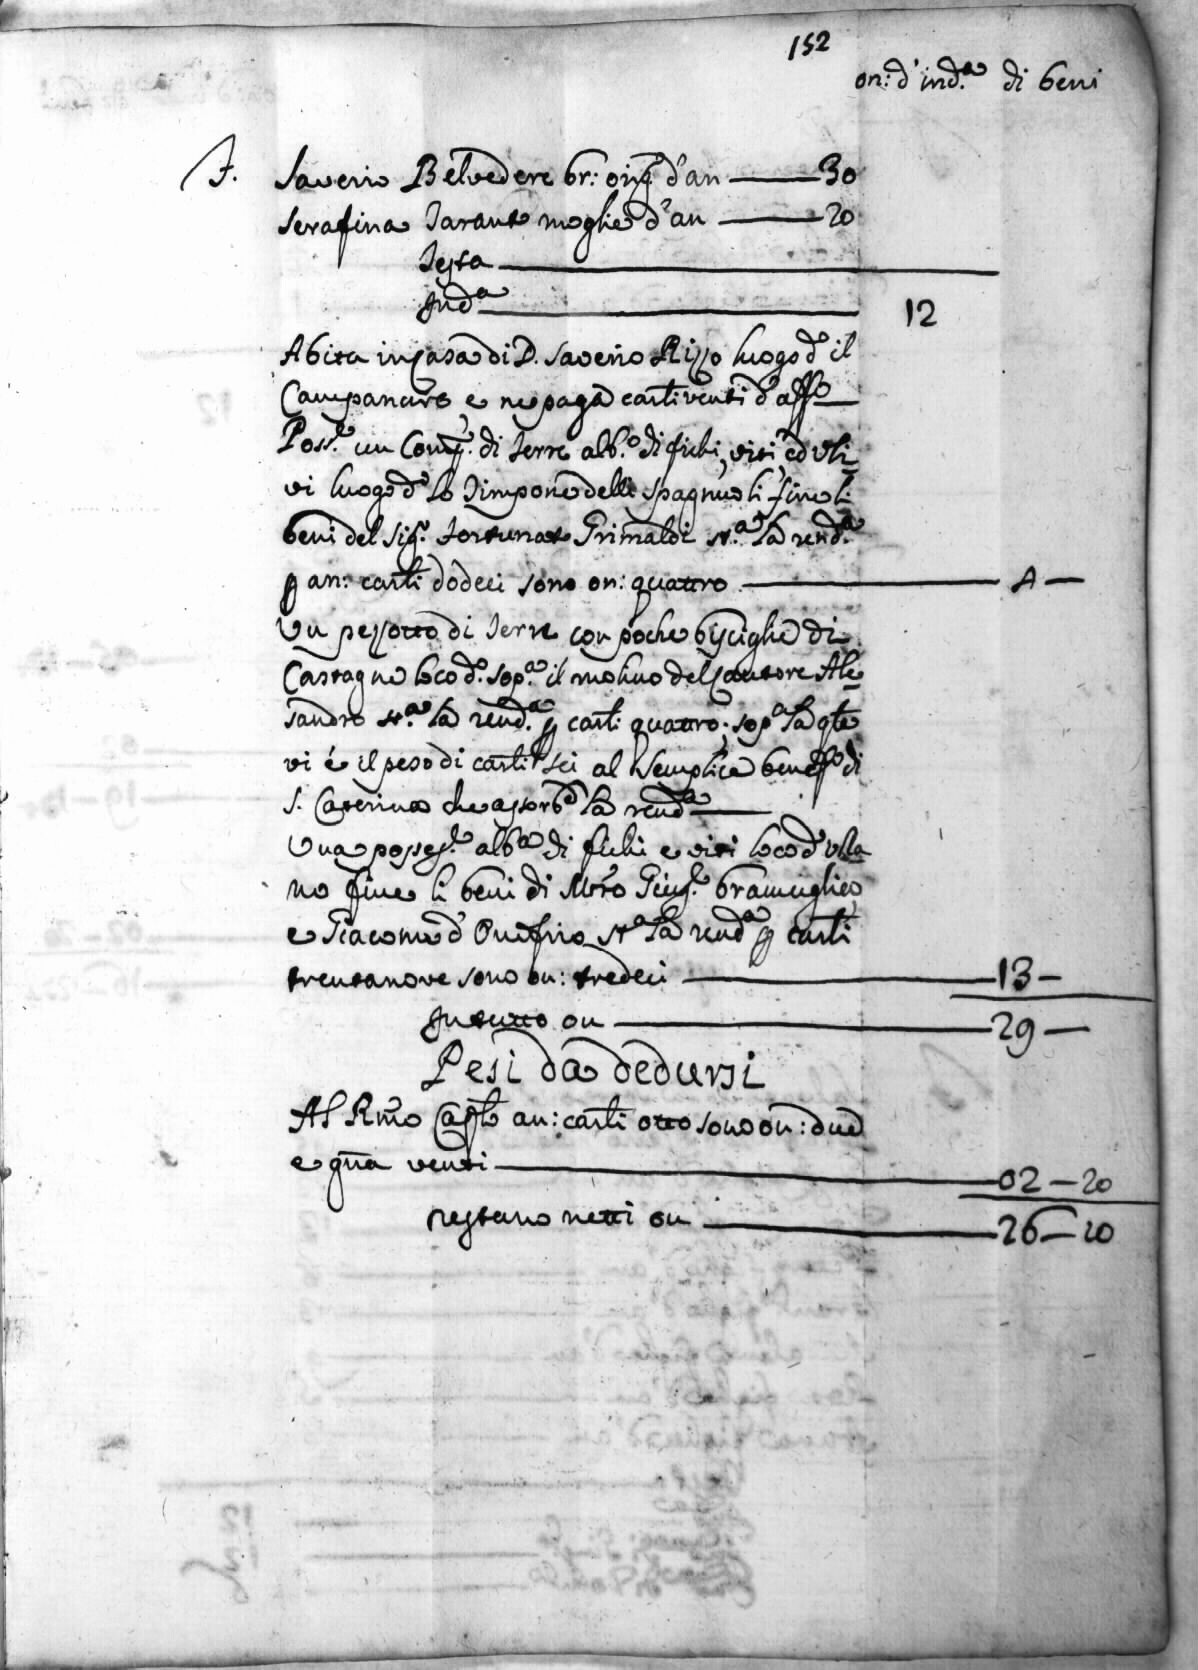 152
on: d'ind.a di beni
F. Saverio Belvedere br: orig.e d'an 30
Serafina Taranto moglie d'an 20
Testa
Ind.a 12
Abita in casa di D. Saverio Rizzo luogo d.o il
Campanaro e ne paga carlini venti d'aff.o
Poss.e un Comp.o di Terre alb.o di fichi, viti, ed uli=
vi luogo d.o lo Timpone delli Spagnuoli fine li
beni del Sig.r Fortunato Grimaldi st.a la rend.a
p an: carlini dodeci sono on: quattro 4
Un pezzotto di Terre con poche bisciglie di
Castagne loco d.o sop.a il molino del Dottore Ale=
sandro st.a la rend.a p carli quattro; sop.a la qle
vi è il peso di carli sei al semplice beneff.o di
S. Caterina che assorbe la rend.a
Una posses.e alb.a di fichi e viti loco d.o Ulia
no fine li beni di Mro Gius.e Bramuglieo
e Giacomo d'Onofrio st.a la rend.a p carli
trentanove sono on: tredeci 13
In tutto on 29
Pesi da dedursi
Al Rmo Caplo an: carli otto sono on: due
e gna venti 02 - 20
restano netti on 26 - 20